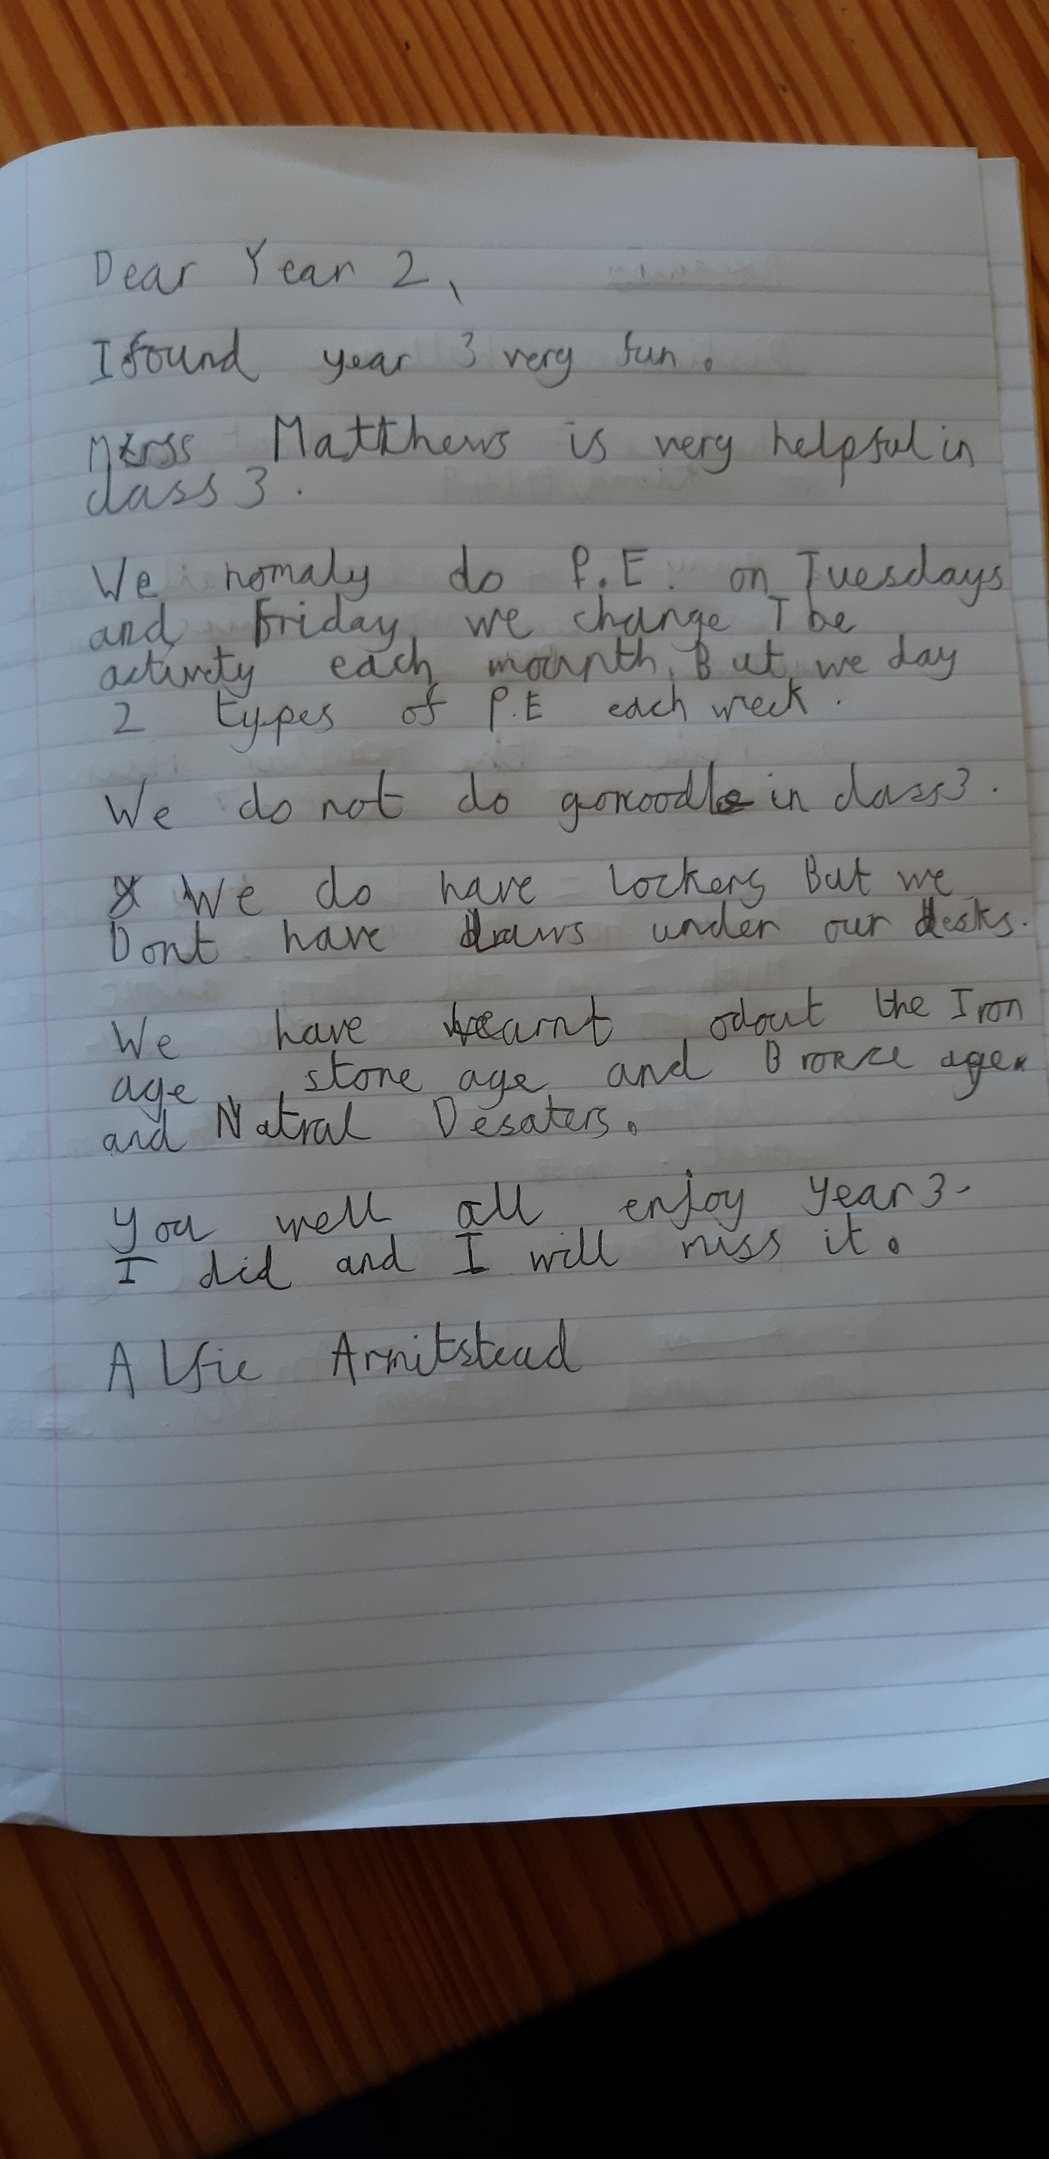 Dear Year 2,
I found year 3 very fun.
Mrss Matthews is very helpful in
class 3.
We nomaly do P.E. on Tuesdays
and Friday, we change The
activety each mounth. But we day
2 types of P.E each week.
We do not do gonoodle in class3.
We do have lockers But we
Dont have draws under our desks.
We have learnt odout the Iron
age, stone age and Bronze age.
and Natral Desaters.
You well all enjoy Year 3.
I did and I will miss it.
Alfie Armitstead